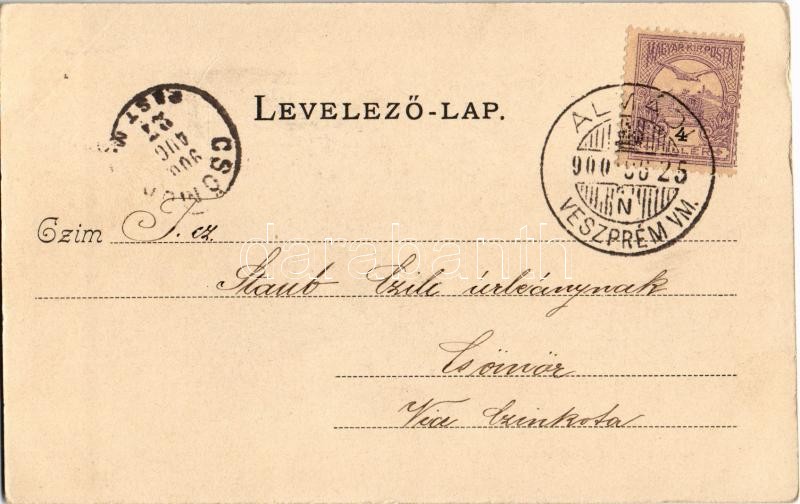 MAGYAR KIR. POSTA
4
ALMÁDI
900 08 25
N
VESZPRÉM VM.
CSÖMÖR
900
AUG
27
PEST M.
LEVELEZŐ-LAP.
Czim T. cz.
Staub Czili úrleánynak
Csömör
Via Czinkota
darabanth